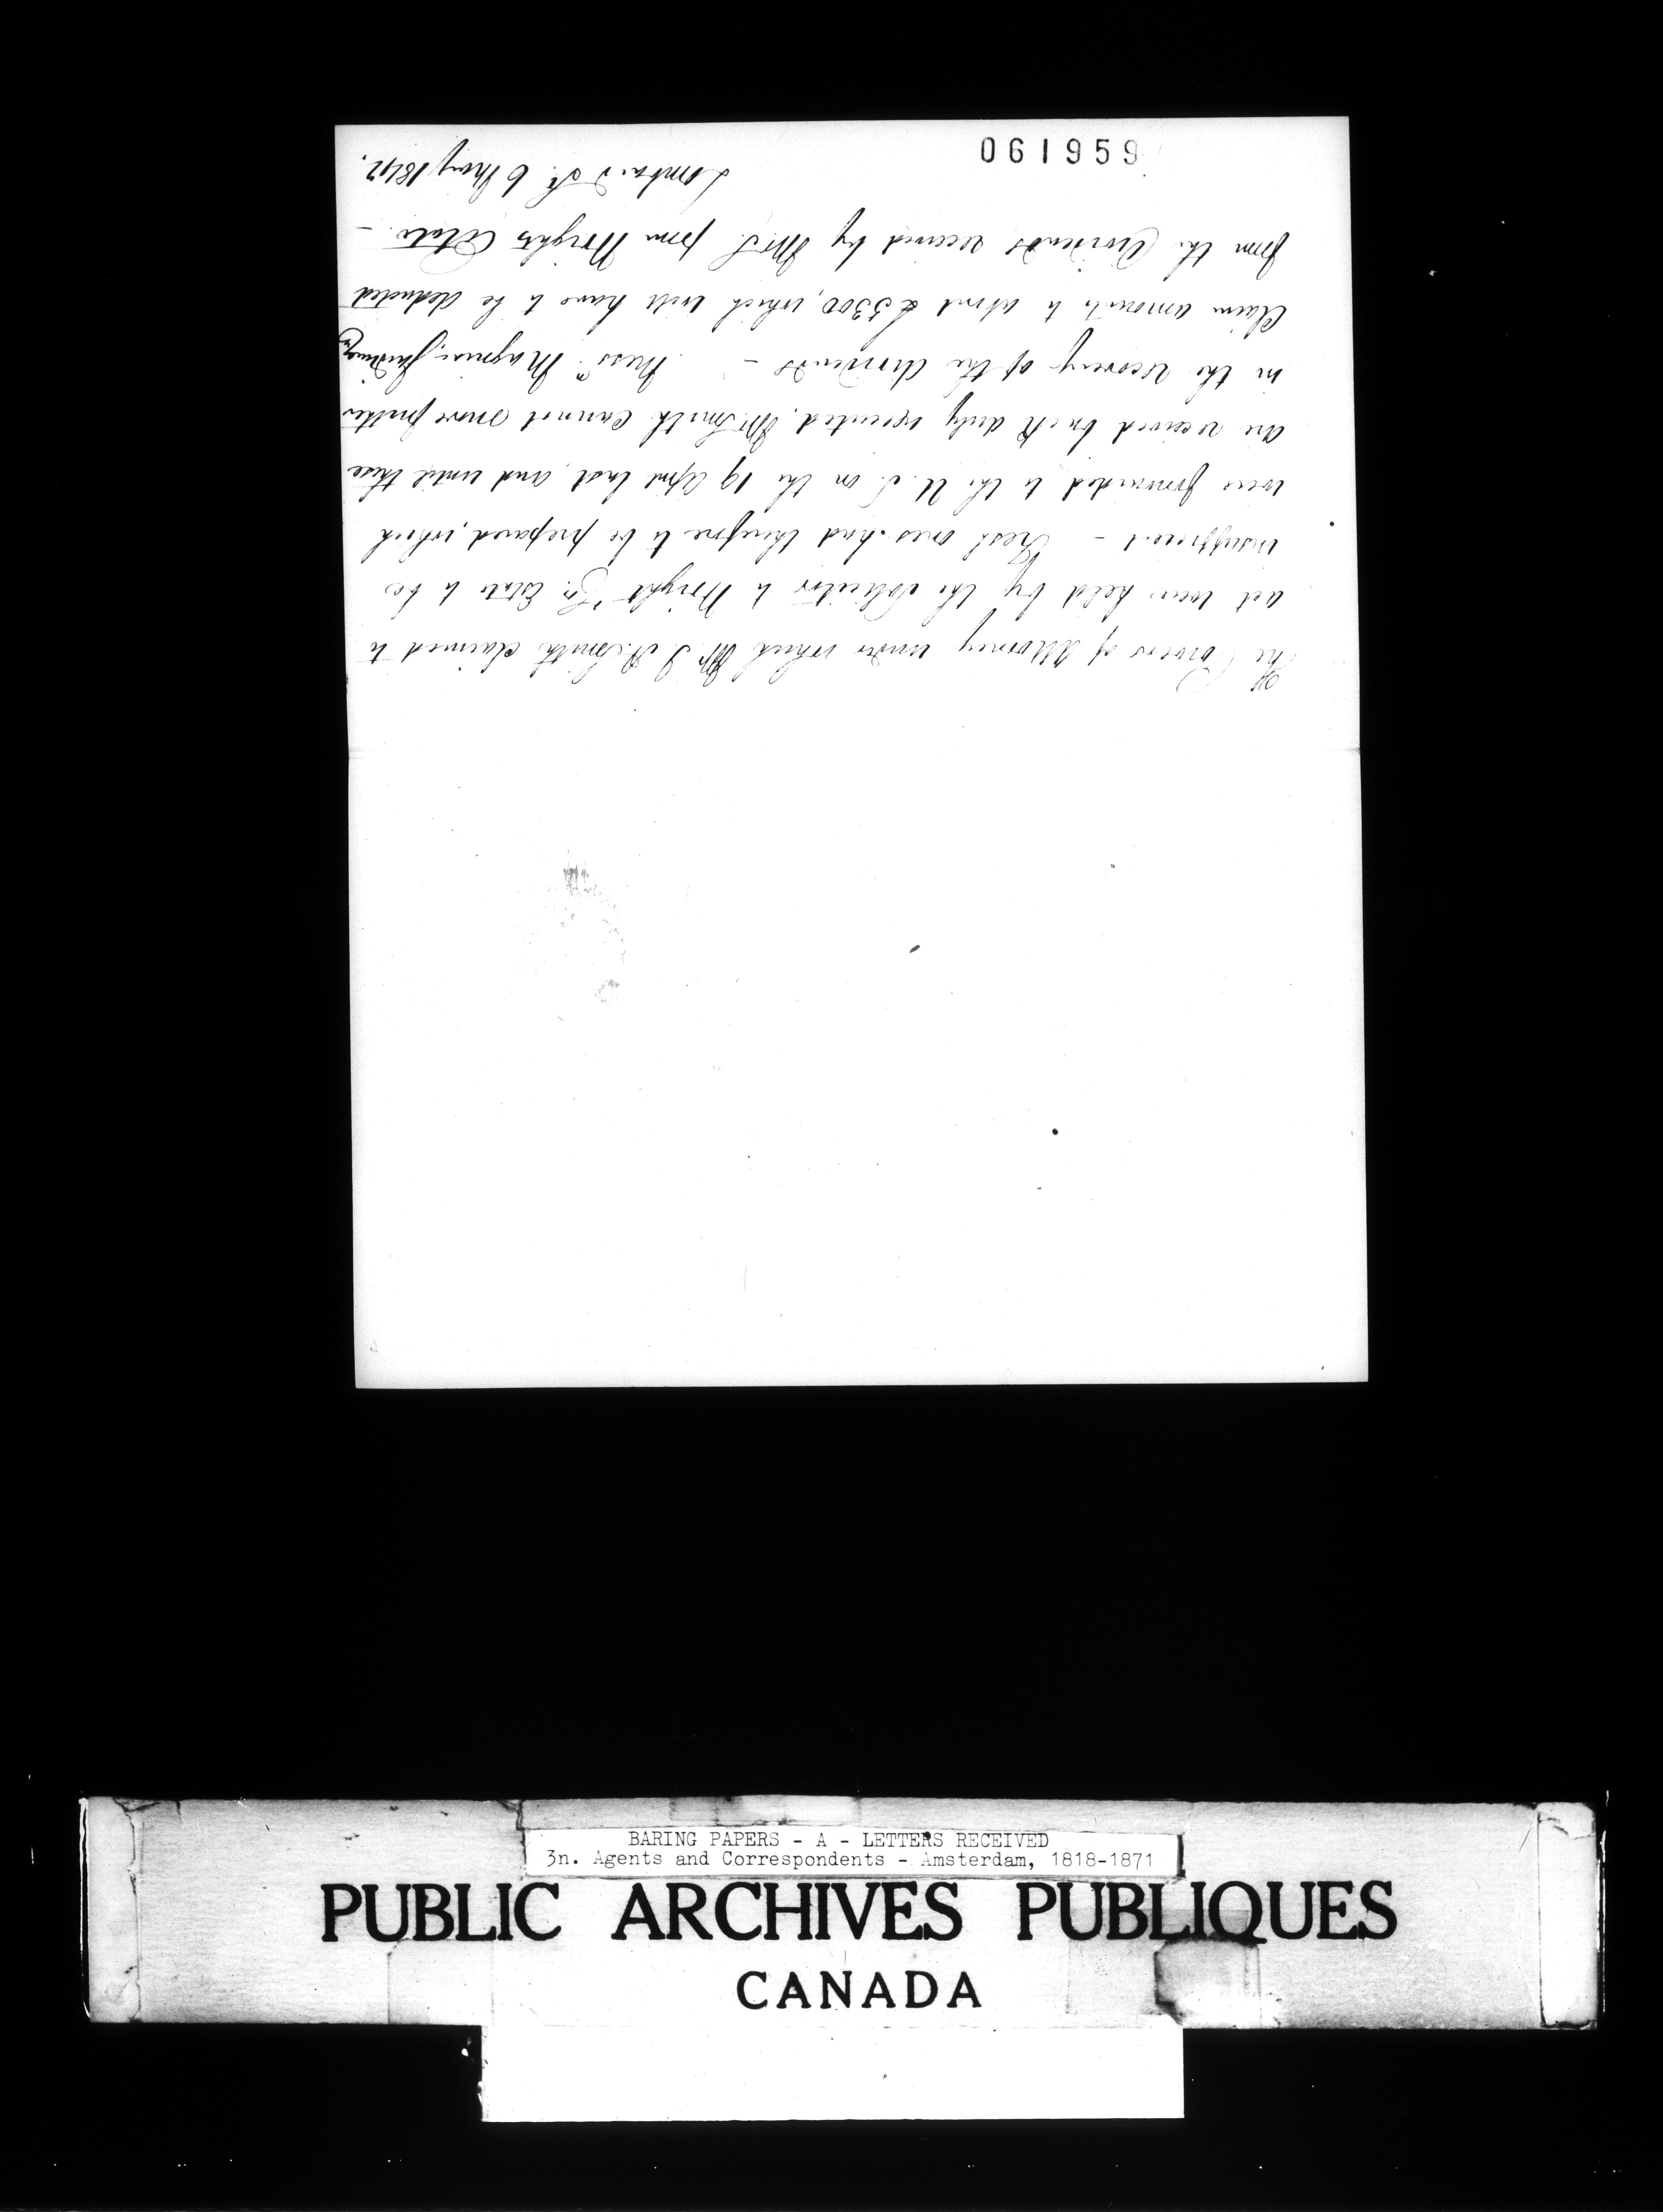 061959
The Powers of Attorney under which Mr J. A. Smith claimed to
act were held by the Solicitor to Wright & Co Estate to be
insufficient - Fresh ones had therefore to be prepared, which
were forwarded to the U. S. on the 19 April last, and until these
are received back duly executed, Mr Smith cannot move further
in the recovery of the dividends - Messrs Magniac Jardine
Claim amounts to about £ 3300, which will have to be deducted
from the Dividends received by Mr S. from Wrights Estate -
Lombard St. 6 May 1842.
BARING PAPERS - A - LETTERS RECEIVED
3n. Agents and Correspondents - Amsterdam, 1818-1871
PUBLIC ARCHIVES PUBLIQUES
CANADA